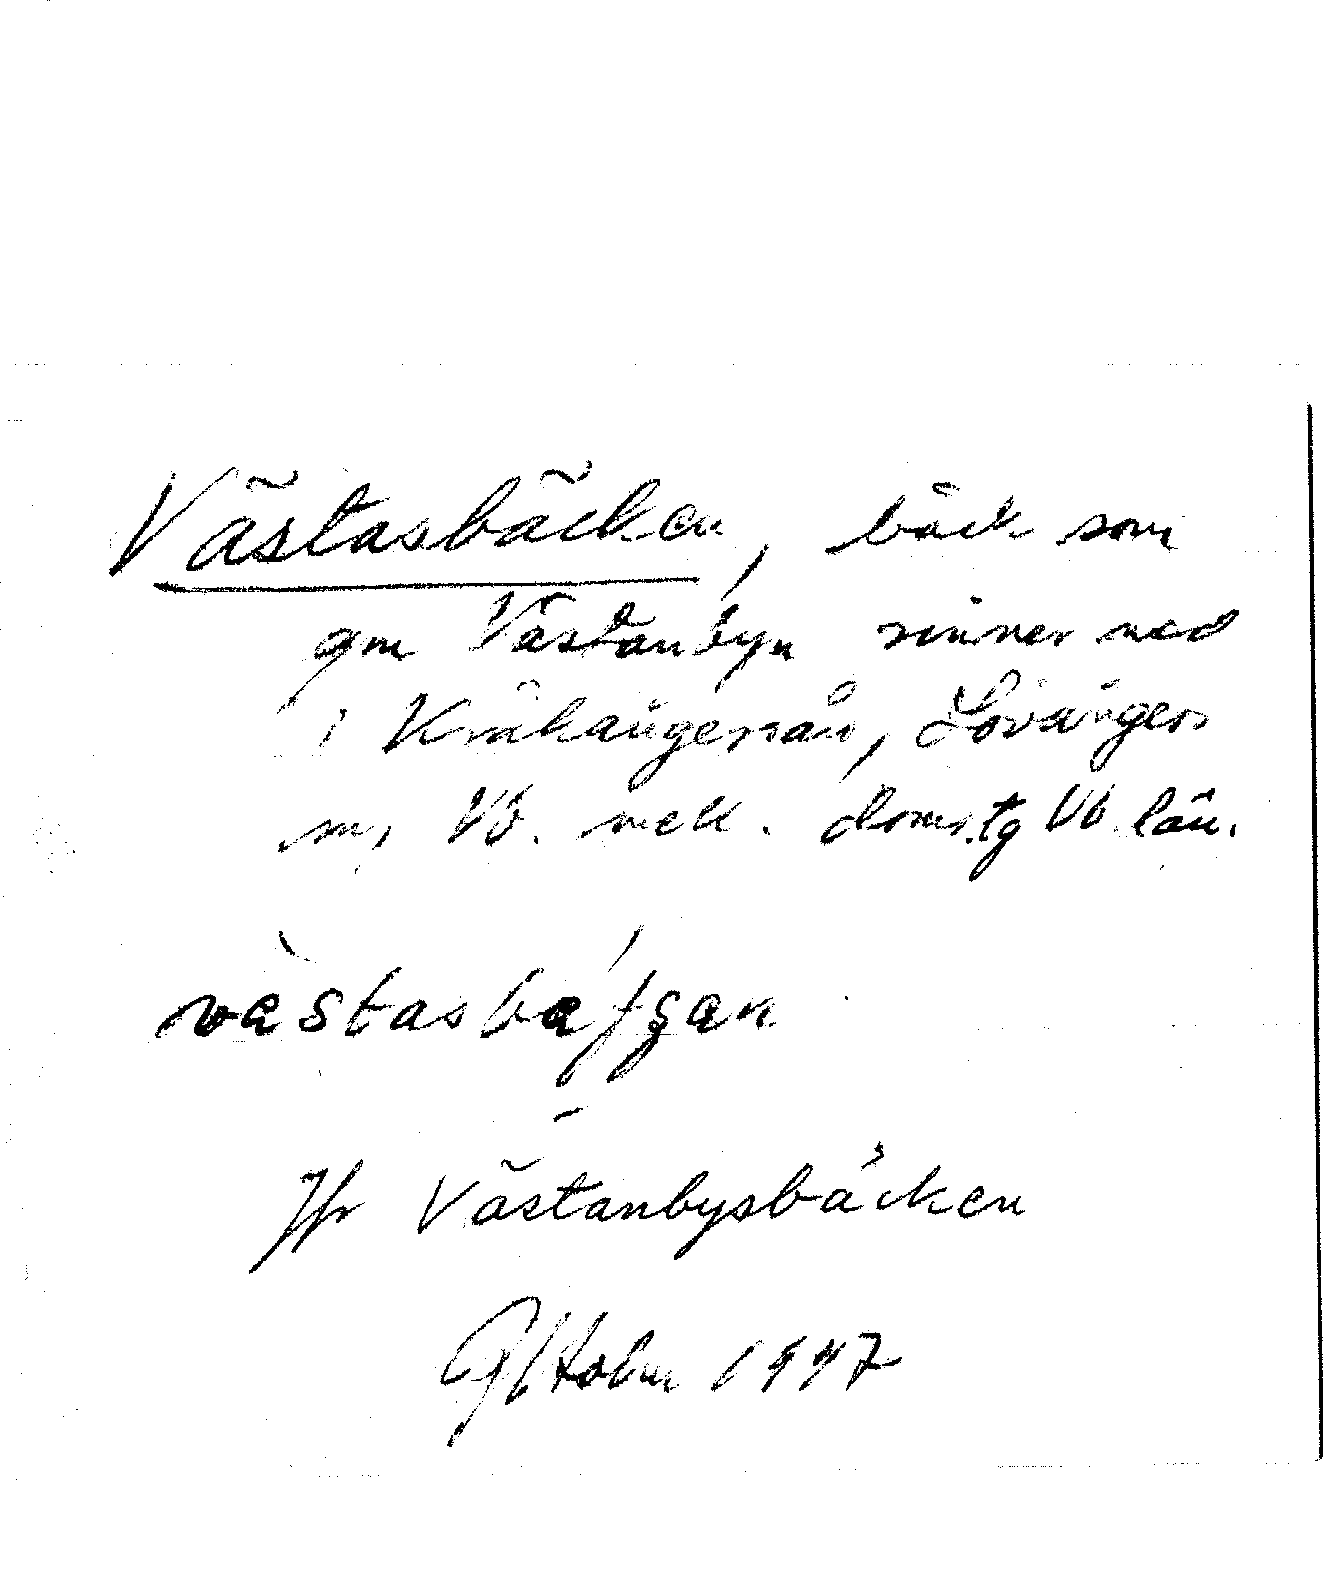 Västasbäcken, bäck som
gm Västanbyn rinner ned
i Kråkängersån, Lövångers
sn, Vb. mell. doms.tg Vb. län.
västasbäʃʒan
Jfr Västanbysbäcken
GHolm 1947